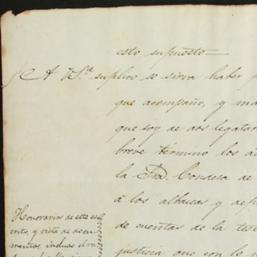 esto supuesto
A V.ª suplico se sirva haber p
que acompaño, y ma
que soy de dos legatar
breve término los a
la Sra. Condesa de
á los albaceas y
de cuentas de la tes
justicia que con lo
Honorarios de este es
crito, y vista de docu
mentos, inclusos